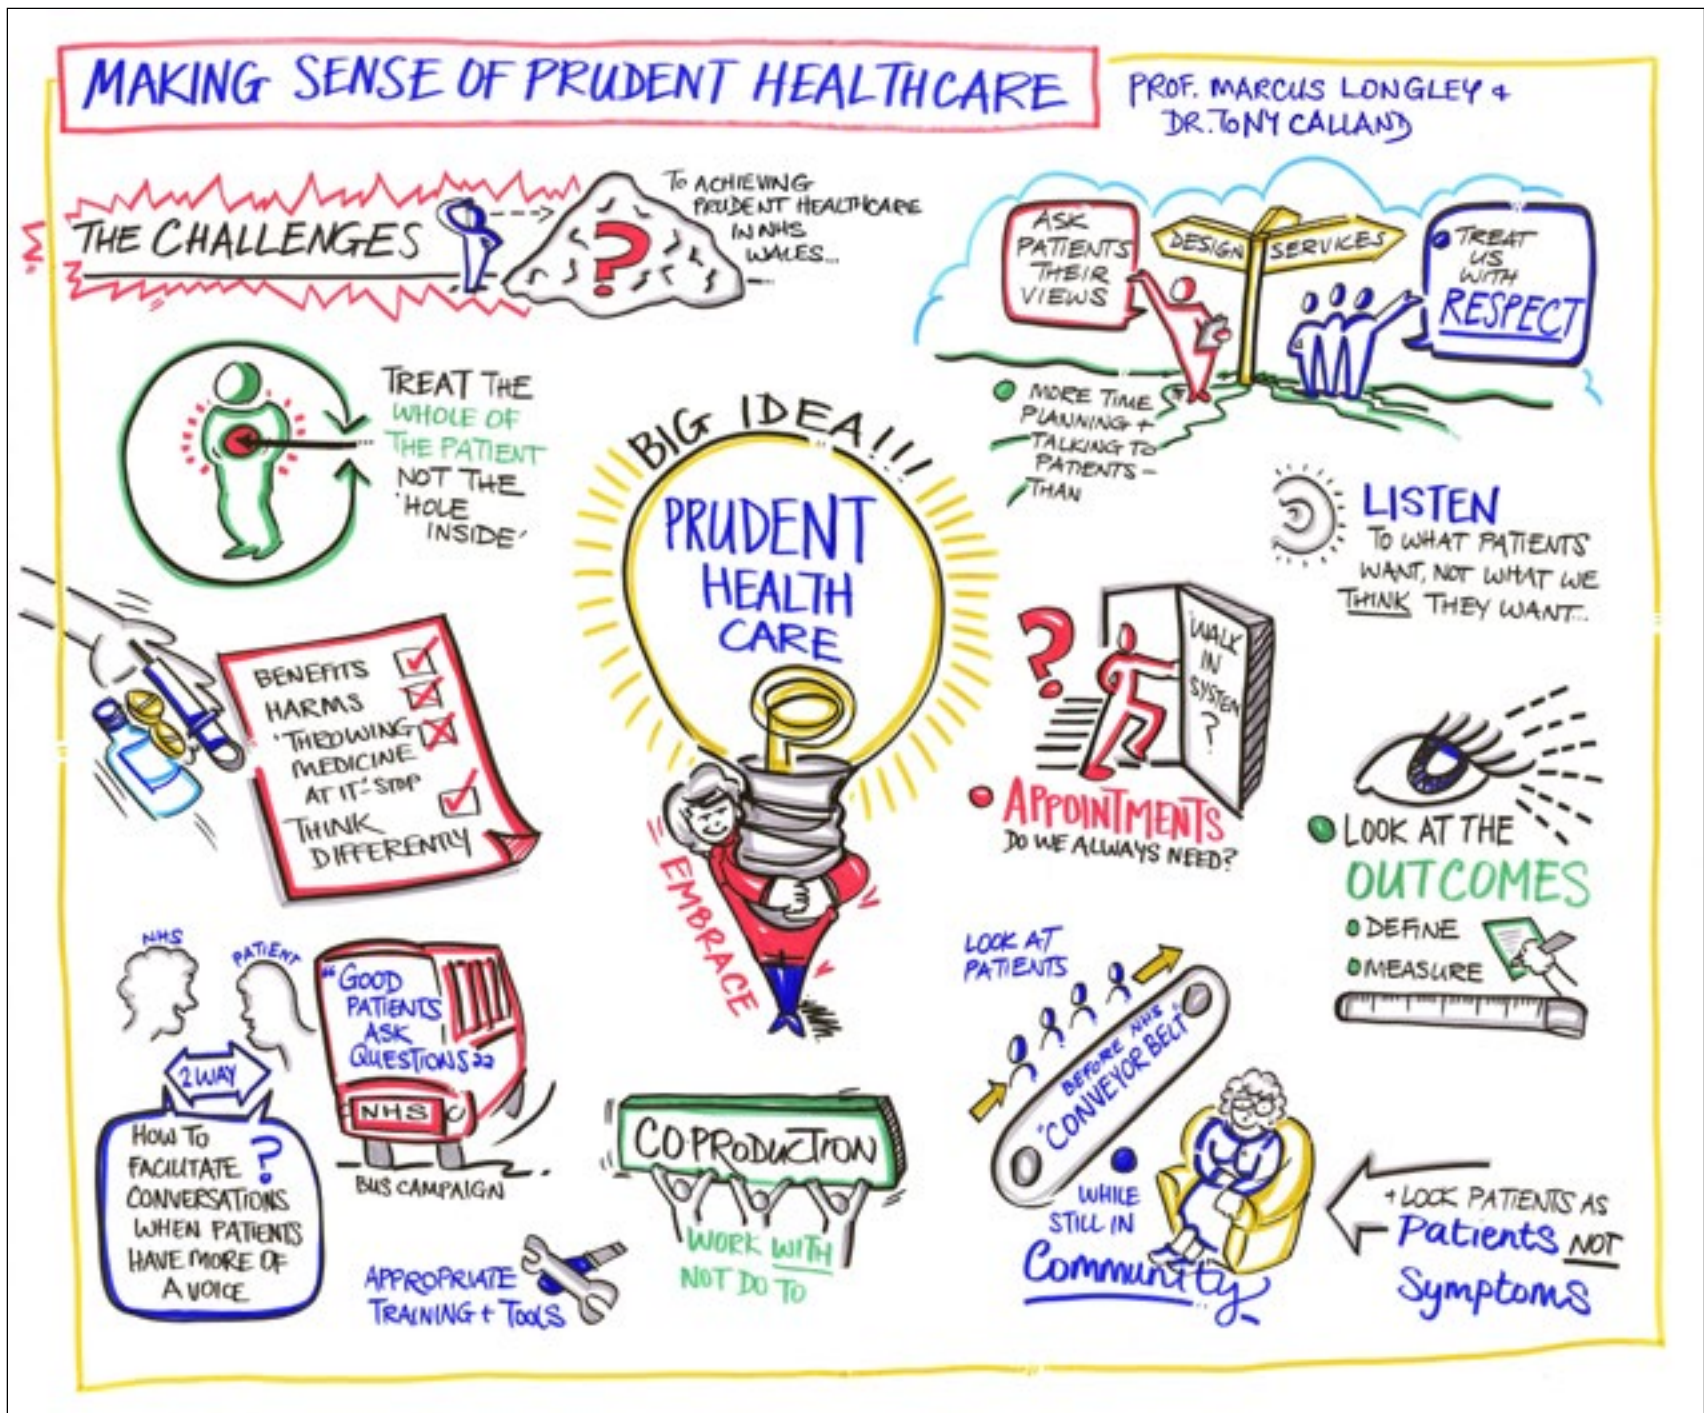 MAKING SENSE OF PRUDENT HEALTHCARE
PROF. MARCUS LONGLEY +
DR. TONY CALLAND
THE CHALLENGES
?
TO ACHIEVING
PRUDENT HEALTHCARE
IN NHS
WALES...
ASK
PATIENTS
THEIR
VIEWS
DESIGN
SERVICES
TREAT
US
WITH
RESPECT
MORE TIME
PLANNING +
TALKING TO
PATIENTS -
THAN
TREAT THE
WHOLE OF
THE PATIENT
NOT THE
'HOLE
INSIDE'
BIG IDEA!!!
PRUDENT
HEALTH
CARE
EMBRACE
LISTEN
TO WHAT PATIENTS
WANT, NOT WHAT WE
THINK THEY WANT...
BENEFITS
HARMS
'THROWING
MEDICINE
AT IT'- STOP
THINK
DIFFERENTLY
?
'WALK
IN
SYSTEM
?
APPOINTMENTS
DO WE ALWAYS NEED?
LOOK AT THE
OUTCOMES
DEFINE
MEASURE
NHS
PATIENT
2 WAY
HOW TO
FACILITATE ?
CONVERSATIONS
WHEN PATIENTS
HAVE MORE OF
A VOICE
"GOOD
PATIENTS
ASK
QUESTIONS"
NHS
BUS CAMPAIGN
APPROPRIATE
TRAINING + TOOLS
CO-PRODUCTION
WORK WITH
NOT DO TO
LOOK AT
PATIENTS
BEFORE NHS
"CONVEYOR BELT"
WHILE
STILL IN
Community
+ LOOK PATIENTS AS
Patients NOT
Symptoms